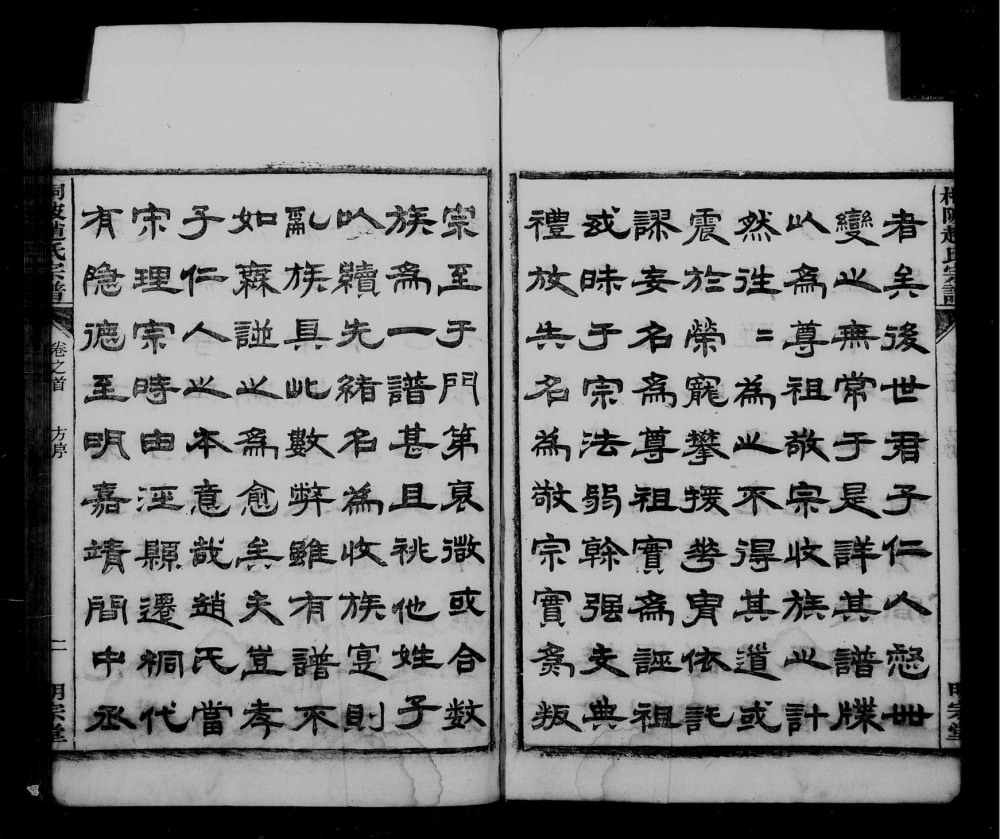 桐陂趙氏宗譜
明宗堂
者矣後世君子仁人愍丗
變之無常于是詳其譜牒
以為尊祖敬宗收族之計
然往二為之不得其道或
震於榮寵攀援華胄依託
謬妄名為尊祖實為誣祖
或昧于宗法弱榦强支典
禮放失名為敬宗實為叛
宗至于門第衰微或合數
族為一譜甚且祧他姓子
以續先緒名為收族寔則
亂族具此數弊雖有譜不
如無譜之為愈矣夫豈孝
子仁人之本意哉趙氏當
宋理宗時由涇縣遷桐代
有隱德至明嘉靖間中丞
桐陂趙氏宗譜
卷之首
方序
二
明宗堂